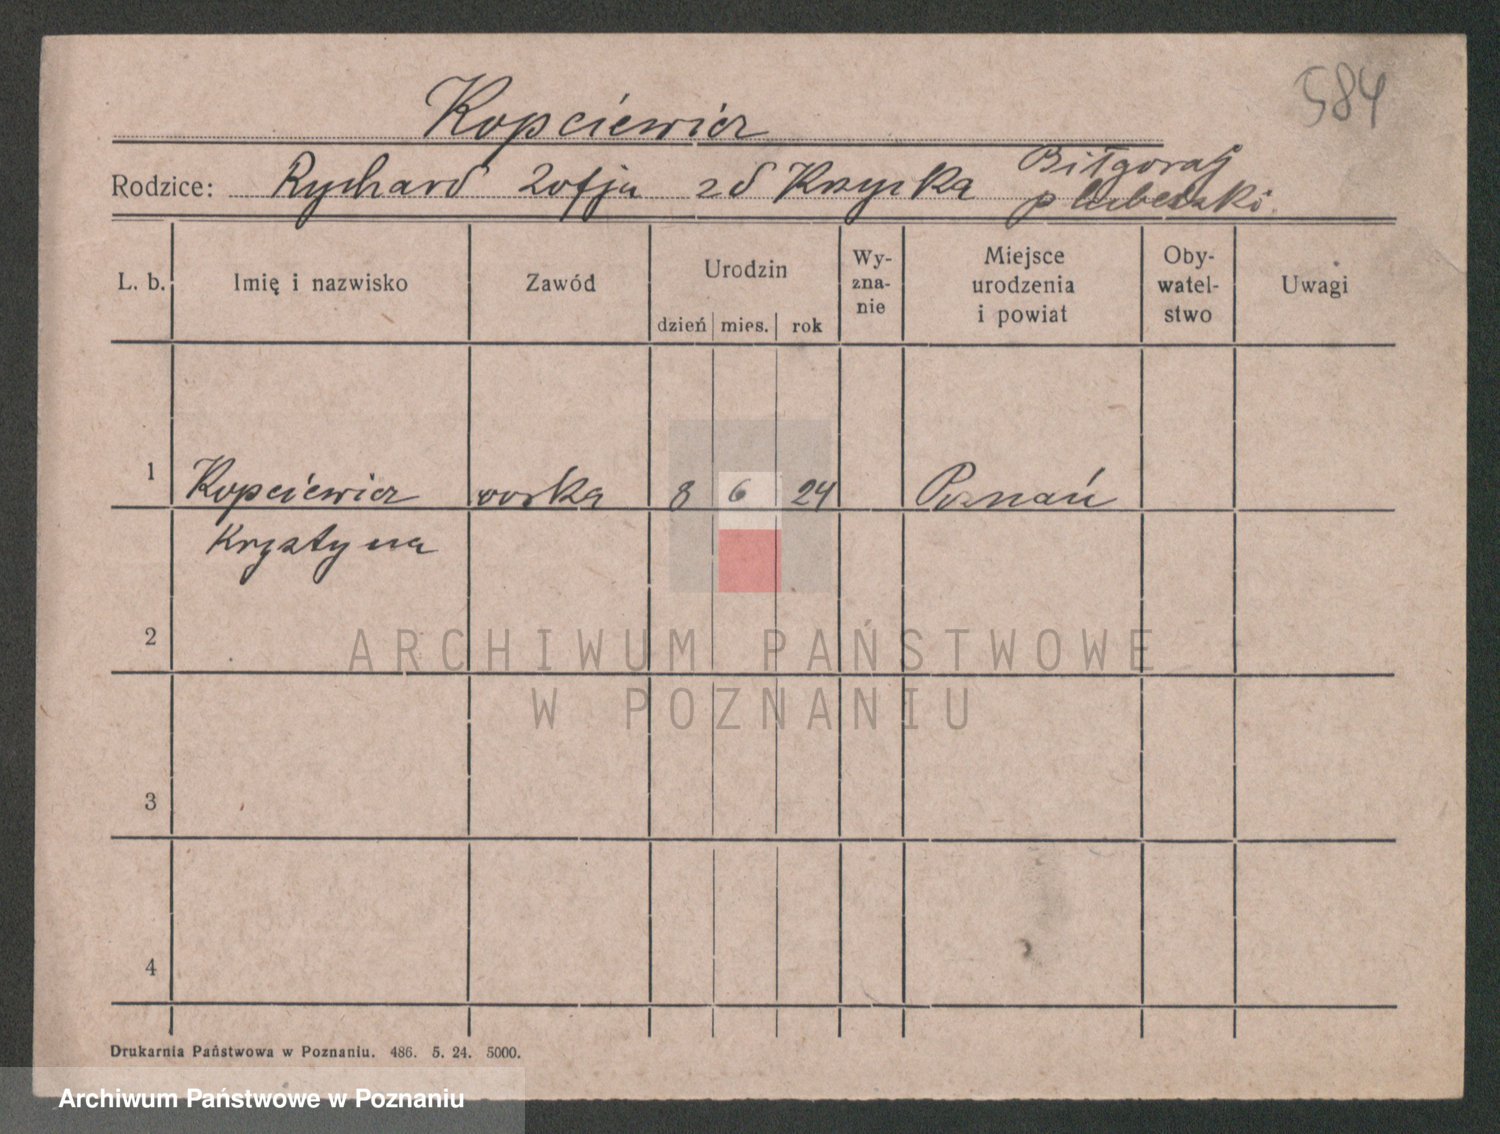 584
Kopciewicz
Rodzice: Rychard Zofja zd Krzycka Biłgoraj
p lubelski
L. b. Imię i nazwisko Zawód Urodzin dzień mies. rok Wy-zna-nie Miejsce urodzenia i powiat Oby-watel-stwo Uwagi
1 Kopciewicz corka 8 6 24 Poznań
Krystyna
2
ARCHIWUM PAŃSTWOWE
W POZNANIU
3
4
Drukarnia Państwowa w Poznaniu. 486. 5. 24. 5000.
Archiwum Państwowe w Poznaniu